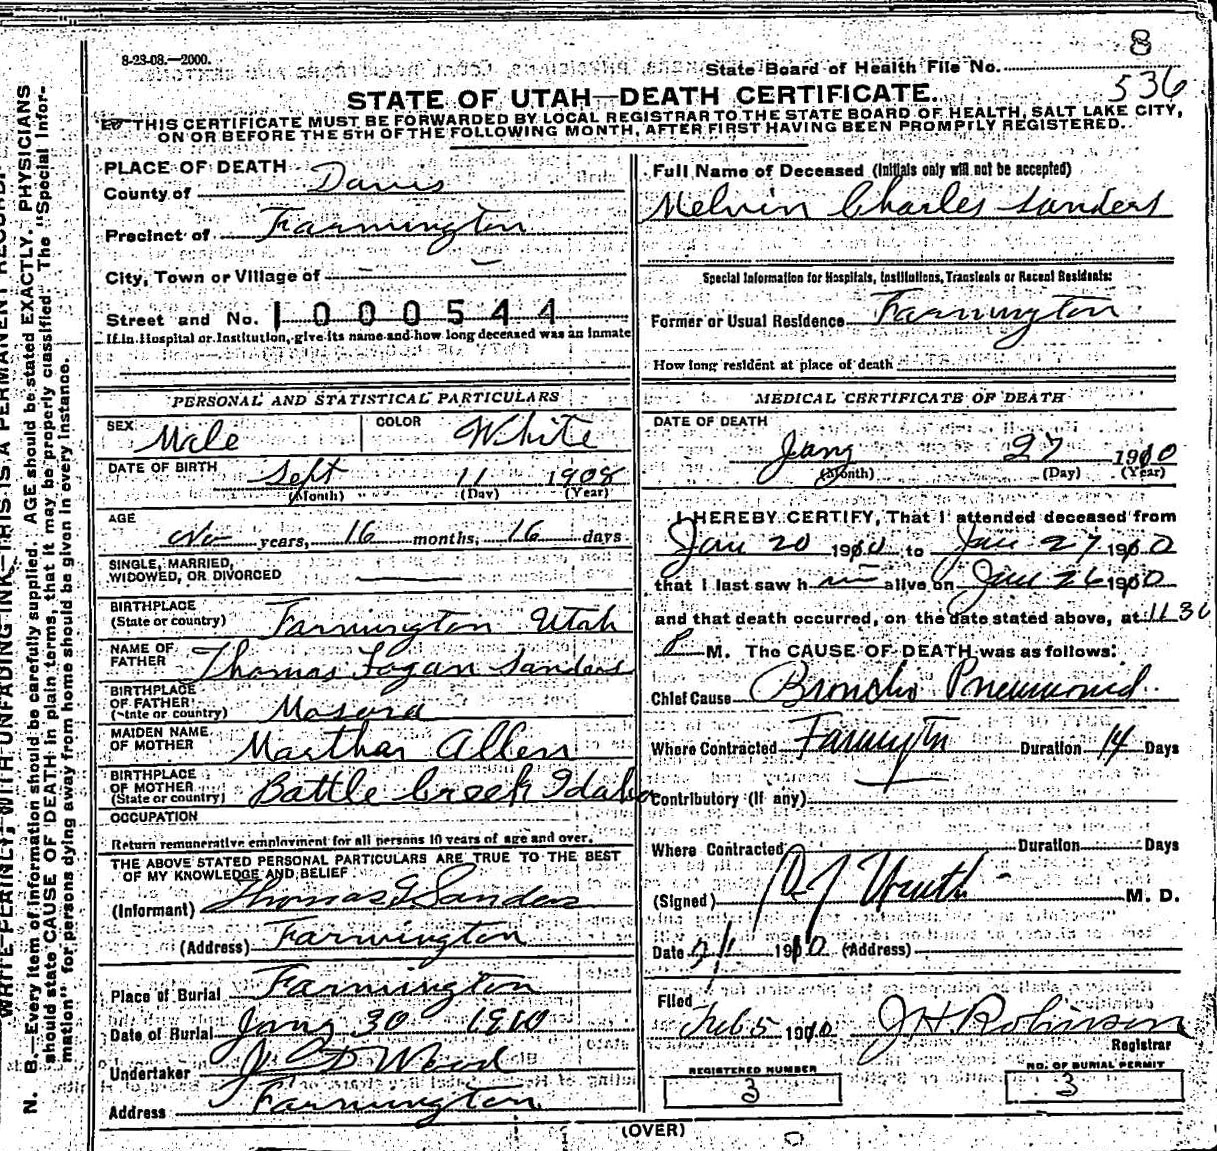 8
8-23-08.—2000.
State Board of Health File No.
536
STATE OF UTAH—DEATH CERTIFICATE.
THIS CERTIFICATE MUST BE FORWARDED BY LOCAL REGISTRAR TO THE STATE BOARD OF HEALTH, SALT LAKE CITY,
ON OR BEFORE THE 5TH OF THE FOLLOWING MONTH, AFTER FIRST HAVING BEEN PROMPTLY REGISTERED.
PLACE OF DEATH
County of Davis
Precinct of Farmington
City, Town or Village of — —
Street and No. 1000544
If in Hospital or Institution, give its name and how long deceased was an inmate
PERSONAL AND STATISTICAL PARTICULARS
SEX Male COLOR White
DATE OF BIRTH Sept 11 1908
(Month) (Day) (Year)
AGE
No years, 16 months, 16 days
SINGLE, MARRIED,
WIDOWED, OR DIVORCED —
BIRTHPLACE
(State or country) Farmington Utah
NAME OF
FATHER Thomas Fogan Sanders
BIRTHPLACE
OF FATHER
(State or country)
MAIDEN NAME
OF MOTHER Martha Allen
BIRTHPLACE
OF MOTHER
(State or country) Battle Creek Idaho
OCCUPATION
Return remunerative employment for all persons 10 years of age and over.
THE ABOVE STATED PERSONAL PARTICULARS ARE TRUE TO THE BEST
OF MY KNOWLEDGE AND BELIEF
(Informant) Thomas F Sanders
(Address) Farmington
Place of Burial Farmington
Date of Burial Jany 30 1910
Undertaker J D Wood
Address Farmington
Full Name of Deceased (Initials only will not be accepted)
Melvin Charles Sanders
Special Information for Hospitals, Institutions, Transients or Recent Residents:
Former or Usual Residence Farmington
How long resident at place of death
MEDICAL CERTIFICATE OF DEATH
DATE OF DEATH
Jany 27 1910
(Month) (Day) (Year)
I HEREBY CERTIFY, That I attended deceased from
Jan 20 1910 to Jan 27 1910
that I last saw h im alive on Jan 26 1910
and that death occurred, on the date stated above, at 11 30
P M. The CAUSE OF DEATH was as follows:
Chief Cause Broncho Pneumonia
Where Contracted Farmington Duration 14 Days
Contributory (if any)
Where Contracted Duration Days
(Signed) M. D.
Date 1910 (Address)
Filed
Feb 5 1910 J H Robinson
Registrar
REGISTERED NUMBER
3
NO. OF BURIAL PERMIT
3
(OVER)
WRITE PLAINLY, WITH UNFADING INK—THIS IS A PERMANENT RECORD.
N. B.—Every item of information should be carefully supplied. AGE should be stated EXACTLY. PHYSICIANS
should state CAUSE OF DEATH in plain terms, that it may be properly classified. The "Special Infor-
mation" for persons dying away from home should be given in every instance.